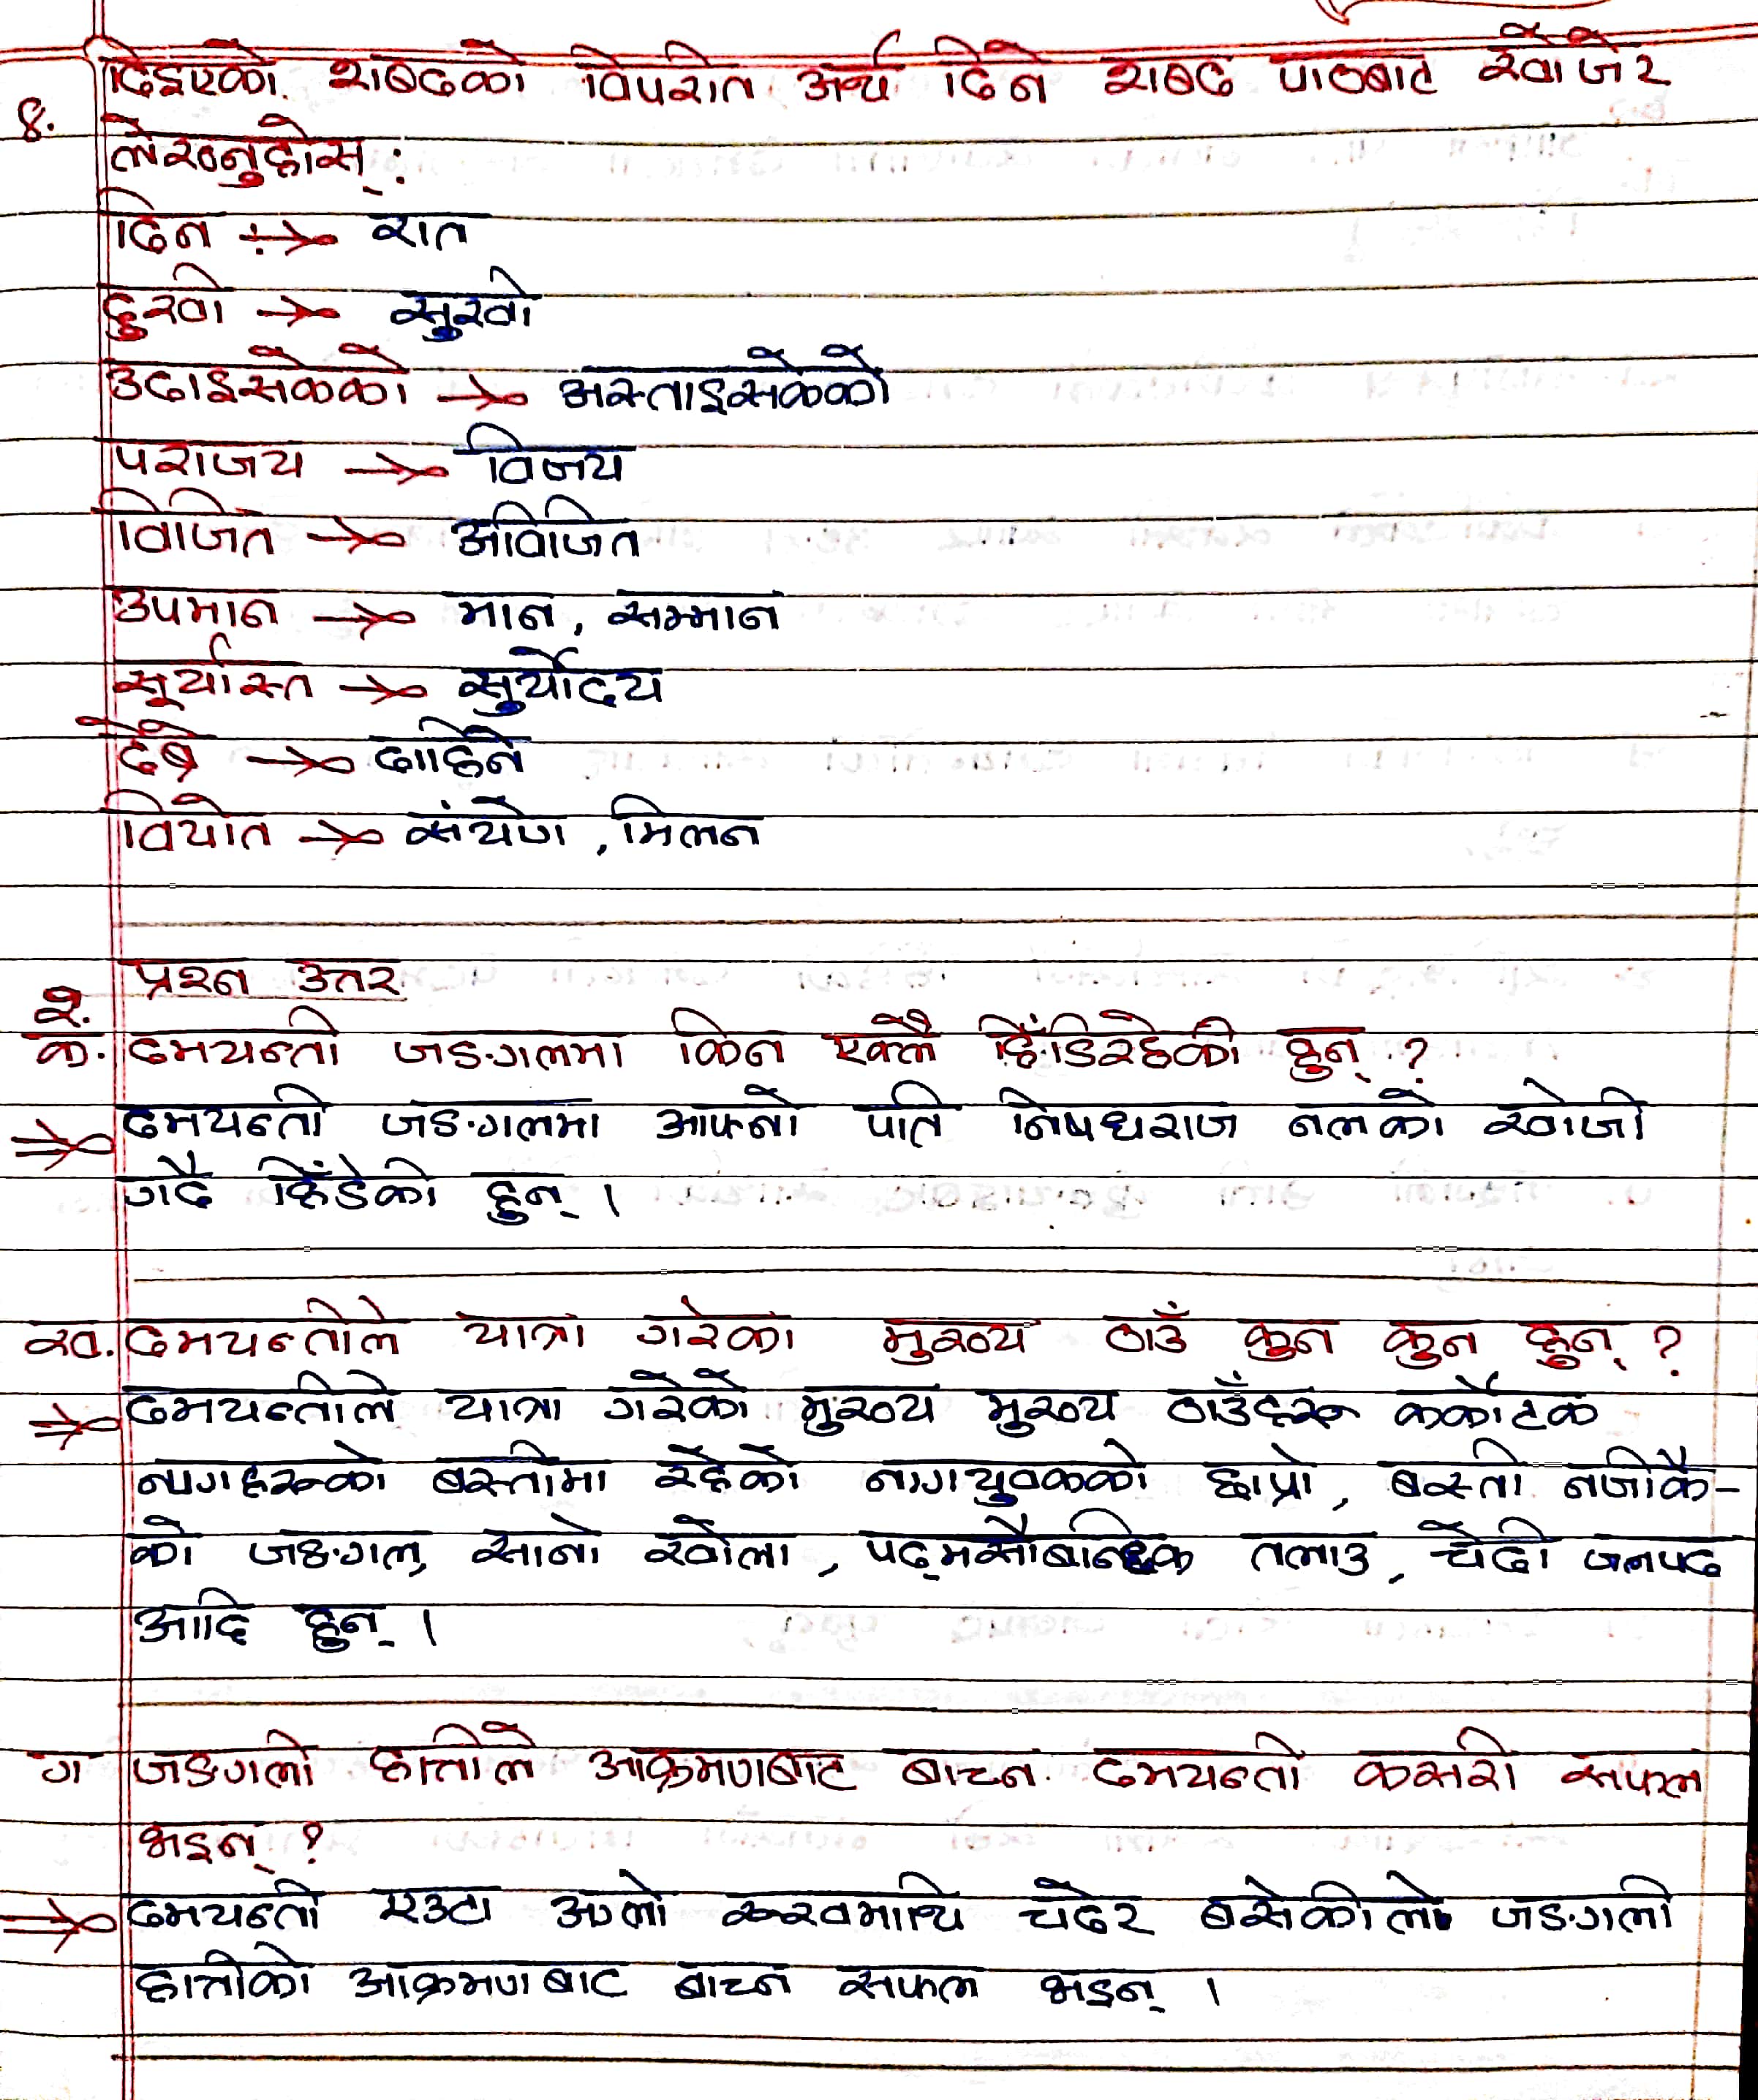 ४. दिइएको शब्दको विपरीत अर्थ दिने शब्द पाठबाट खोजेर
लेख्नुहोस् :
दिन :→ रात
दुखी → सुखी
उदाइसकेको → अस्ताइसकेको
पराजय → विजय
विजित → अविजित
उपमान → मान, सम्मान
सूर्यास्त → सुर्योदय
देब्रे → दाहिने
वियोत → संयोग, मिलन
प्रश्न उतर
२.
क. दमयन्ती जङ्गलमा किन एक्लै हिँडिरहेकी हुन् ?
⇒ दमयन्ती जङ्गलमा आफ्नो पति निषधराज नलको खोजी
गर्दै हिँडेकी हुन् ।
ख. दमयन्तीले यात्रा गरेका मुख्य ठाउँ कुन कुन हुन् ?
⇒ दमयन्तीले यात्रा गरेको मुख्य मुख्य ठाउँहरू कर्कोटक
नागहरूको बस्तीमा रहेको नागयुवकको छाप्रो, बस्ती नजीकै-
को जङ्गल, सानो खोला, पद्मसौबान्धिक तलाउ, चेदी जनपद
आदि हुन् ।
ग जङ्गली हात्तीले आक्रमणबाट बाच्न दमयन्ती कसरी सफल
भइन् ?
⇒ दमयन्ती एउटा अग्लो रूखमाथि चढेर बसेकीले जङ्गली
हात्तीको आक्रमणबाट बाच्न सफल भइन् ।